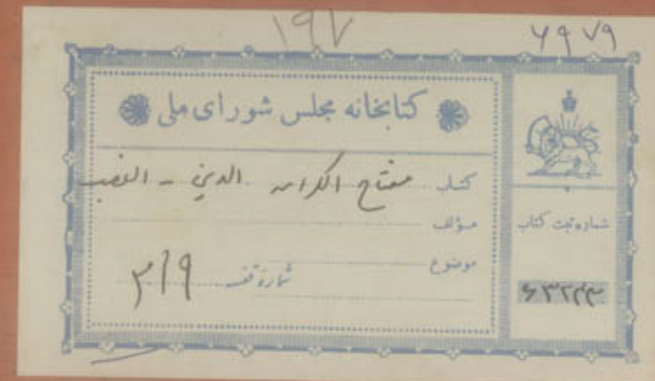 197
۷۹۷۹
کتابخانه مجلس شورای ملی
کتاب مفتاح الکرامه الدین - الغصب
مؤلف
موضوع
شماره قفسه ۳۱۹
شماره ثبت کتاب
۶۳۲۴۳